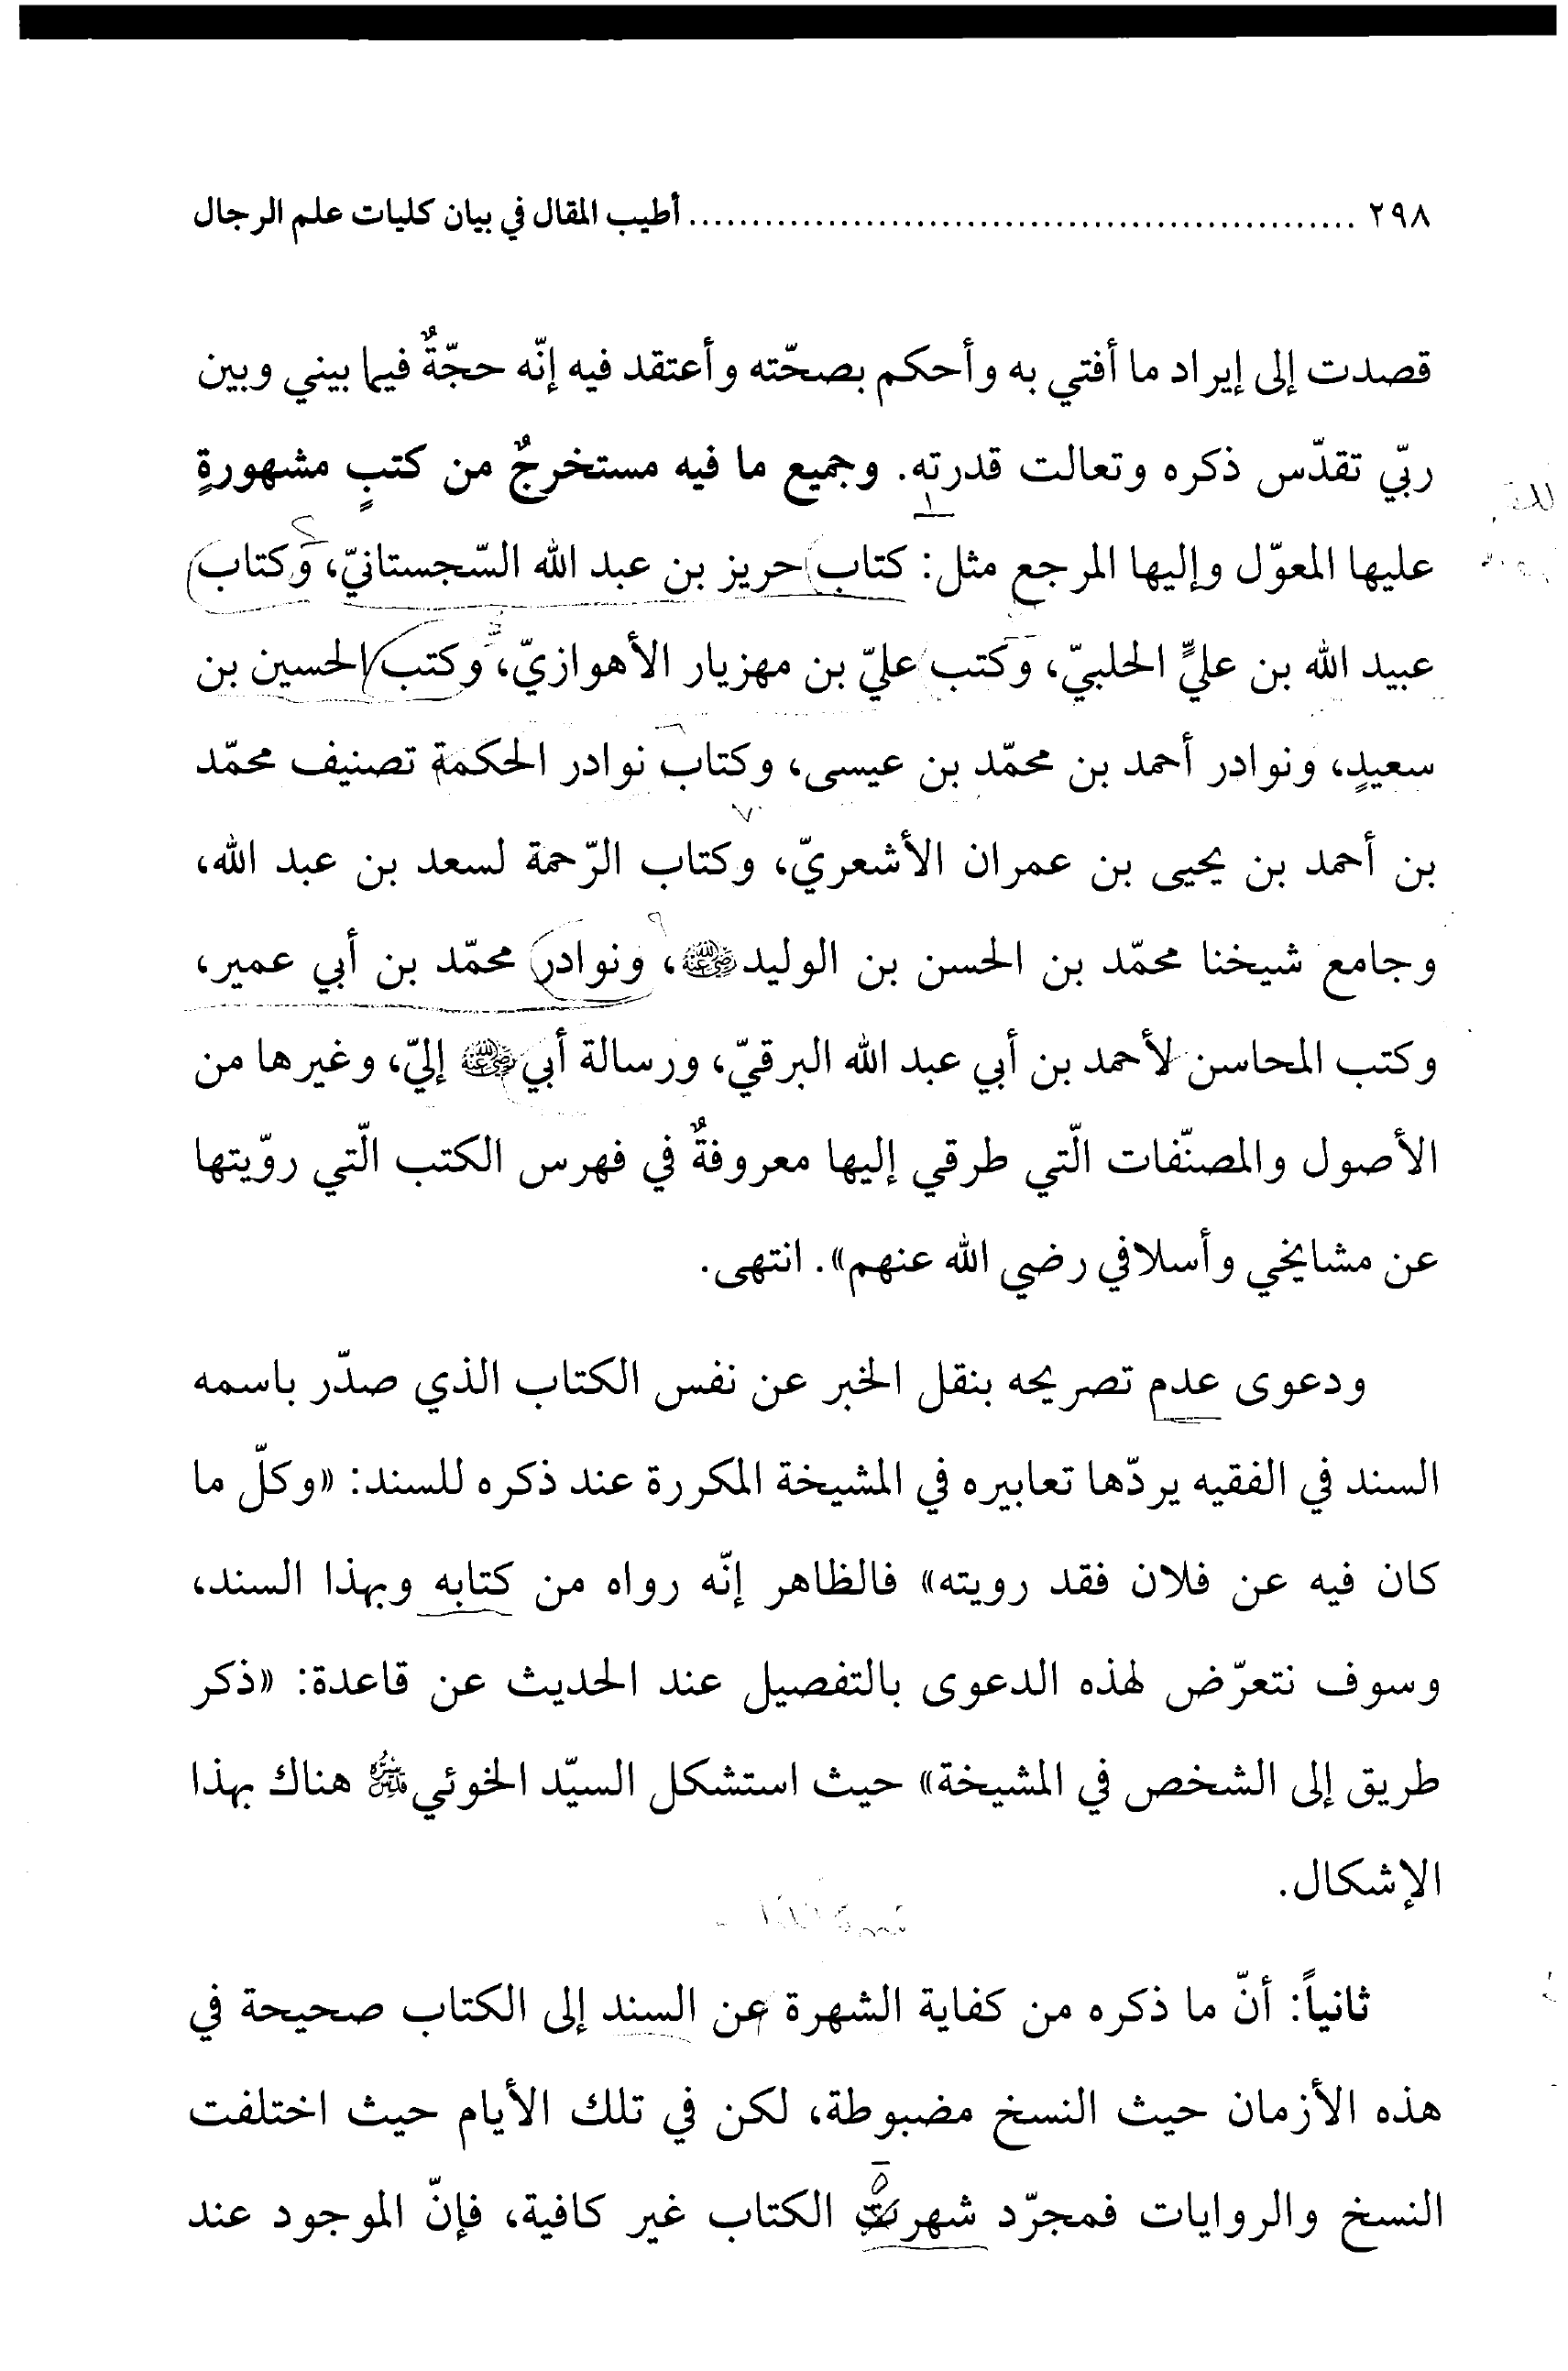 ٢٩٨ ........................................................ أطيب المقال في بيان كليات علم الرجال
قصدت إلى إيراد ما أفتي به وأحكم بصحّته وأعتقد فيه إنّه حجّةٌ فيما بيني وبين
ربّي تقدّس ذكره وتعالت قدرته. وجميع ما فيه مستخرجٌ من كتبٍ مشهورةٍ
عليها المعوّل وإليها المرجع مثل: كتاب حريز بن عبد الله السّجستانيّ، وكتاب
عبيد الله بن عليٍّ الحلبيّ، وكتب عليّ بن مهزيار الأهوازيّ، وكتب الحسين بن
سعيدٍ، ونوادر أحمد بن محمّد بن عيسى، وكتاب نوادر الحكمة تصنيف محمّد
بن أحمد بن يحيى بن عمران الأشعريّ، وكتاب الرّحمة لسعد بن عبد الله،
وجامع شيخنا محمّد بن الحسن بن الوليد رضي الله عنه، ونوادر محمّد بن أبي عمير،
وكتب المحاسن لأحمد بن أبي عبد الله البرقيّ، ورسالة أبي رضي الله عنه إليّ، وغيرها من
الأصول والمصنّفات الّتي طرقي إليها معروفةٌ في فهرس الكتب الّتي روّيتها
عن مشايخي وأسلافي رضي الله عنهم». انتهى.
ودعوى عدم تصريحه بنقل الخبر عن نفس الكتاب الذي صدّر باسمه
السند في الفقيه يردّها تعابيره في المشيخة المكررة عند ذكره للسند: «وكلّ ما
كان فيه عن فلان فقد رويته» فالظاهر إنّه رواه من كتابه وبهذا السند،
وسوف نتعرّض لهذه الدعوى بالتفصيل عند الحديث عن قاعدة: «ذكر
طريق إلى الشخص في المشيخة» حيث استشكل السيّد الخوئي قدس سره هناك بهذا
الإشكال.
ثانياً: أنّ ما ذكره من كفاية الشهرة عن السند إلى الكتاب صحيحة في
هذه الأزمان حيث النسخ مضبوطة، لكن في تلك الأيام حيث اختلفت
النسخ والروايات فمجرّد شهرت الكتاب غير كافية، فإنّ الموجود عند